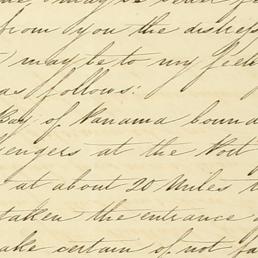 from you the distress
may be to my feel
as follows:
Bay of Panama bound
sengers at the Port
at about 20 Miles
taken the entrance
ake certain of not fa